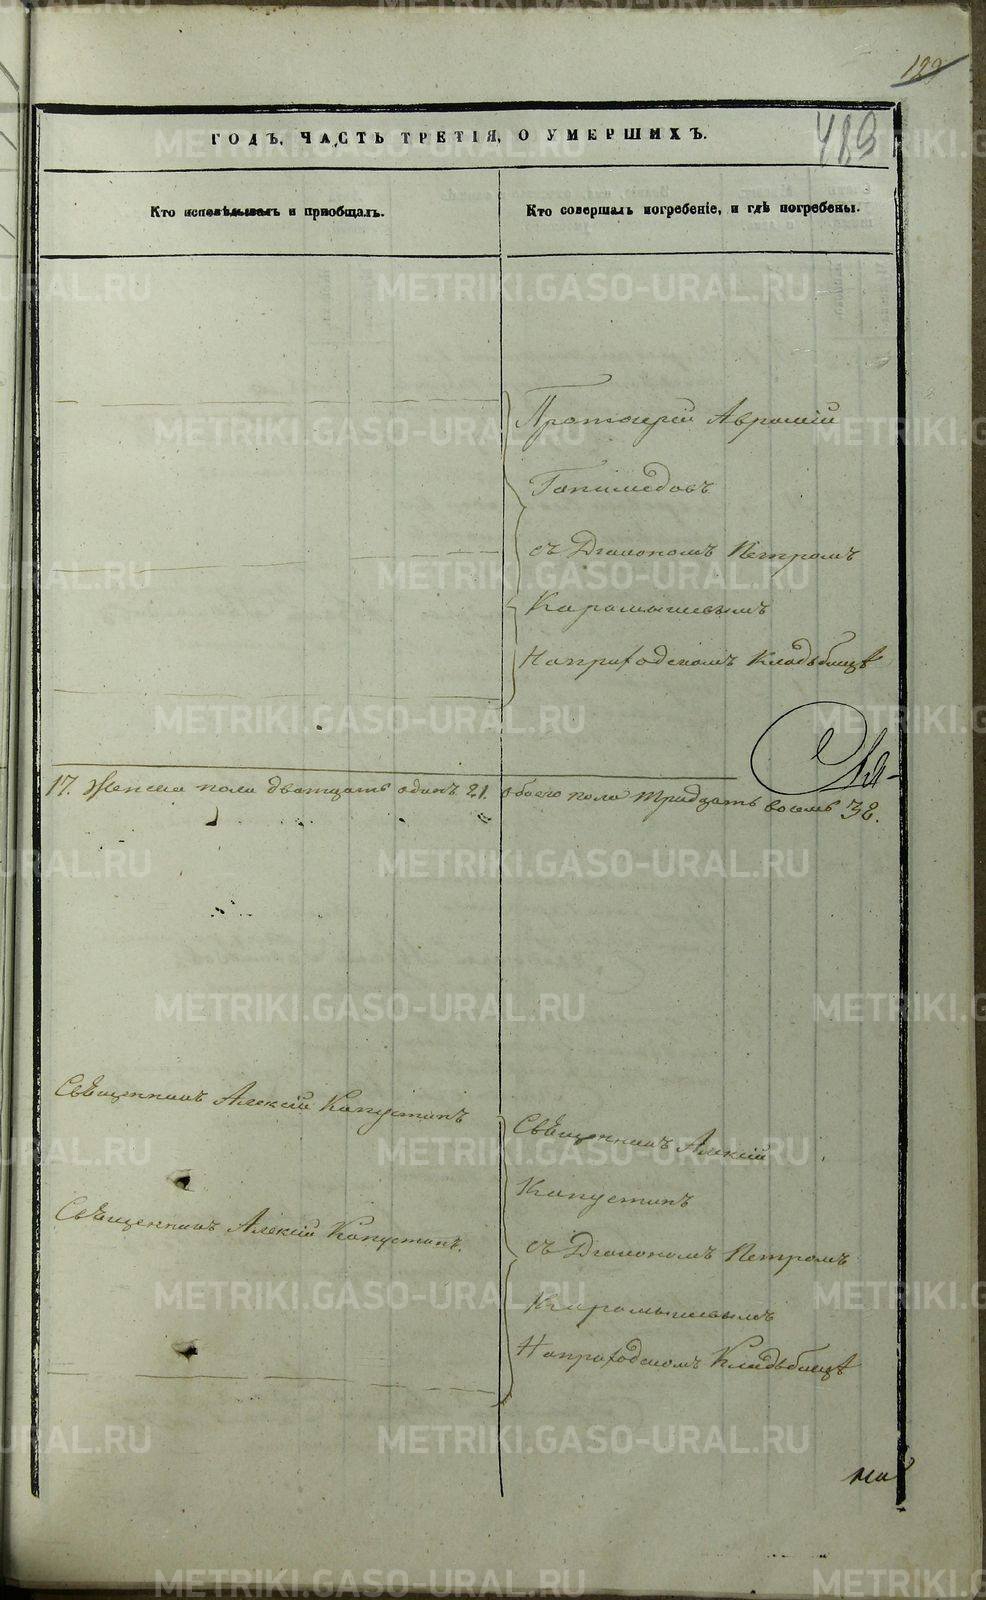 129
ГОДЪ, ЧАСТЬ ТРЕТІЯ, О УМЕРШИХЪ.
489
Кто исповѣдывалъ и пріобщалъ.
Кто совершалъ погребеніе, и гдѣ погребены.
Протоіерей Аврамій
Ганимедовъ
съ Діакономъ Петромъ
Карамышевымъ
На приходскомъ Кладьбищѣ
17. Женска пола двадцать одинъ 21. обоего пола тридцать восемь 38.
Священникъ Алексій Капустинъ
Священникъ Алексій Капустинъ.
Священникъ Алексій
Капустинъ
съ Діакономъ Петромъ
Карамышевымъ
На приходскомъ Кладьбищѣ
METRIKI.GASO-URAL.RU